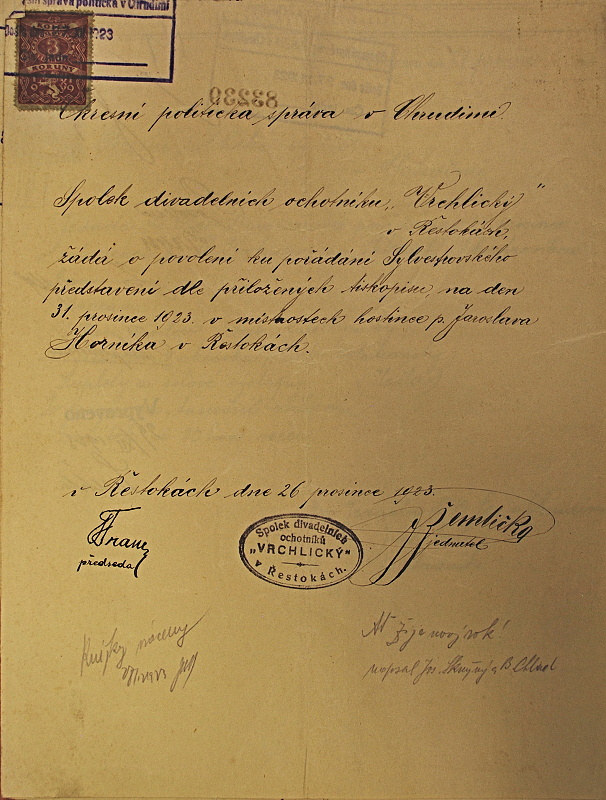 správa politická v Chrudimi
1923
3
KORUNY
83230
Okresní politická správa v Chrudimi.
Spolek divadelních ochotníků „Vrchlický“
v Řestokách
žádá o povolení ku pořádání Sylvestrovského
představení dle přiložených tiskopisů, na den
31. prosince 1923. v místnostech hostince p. Jaroslava
Horníka v Řestokách.
v Řestokách dne 26 prosince 1923.
předseda
Spolek divadelních
ochotníků
„VRCHLICKÝ“
v Řestokách.
Žemlička
jednatel
Ať žije nový rok!
napsal